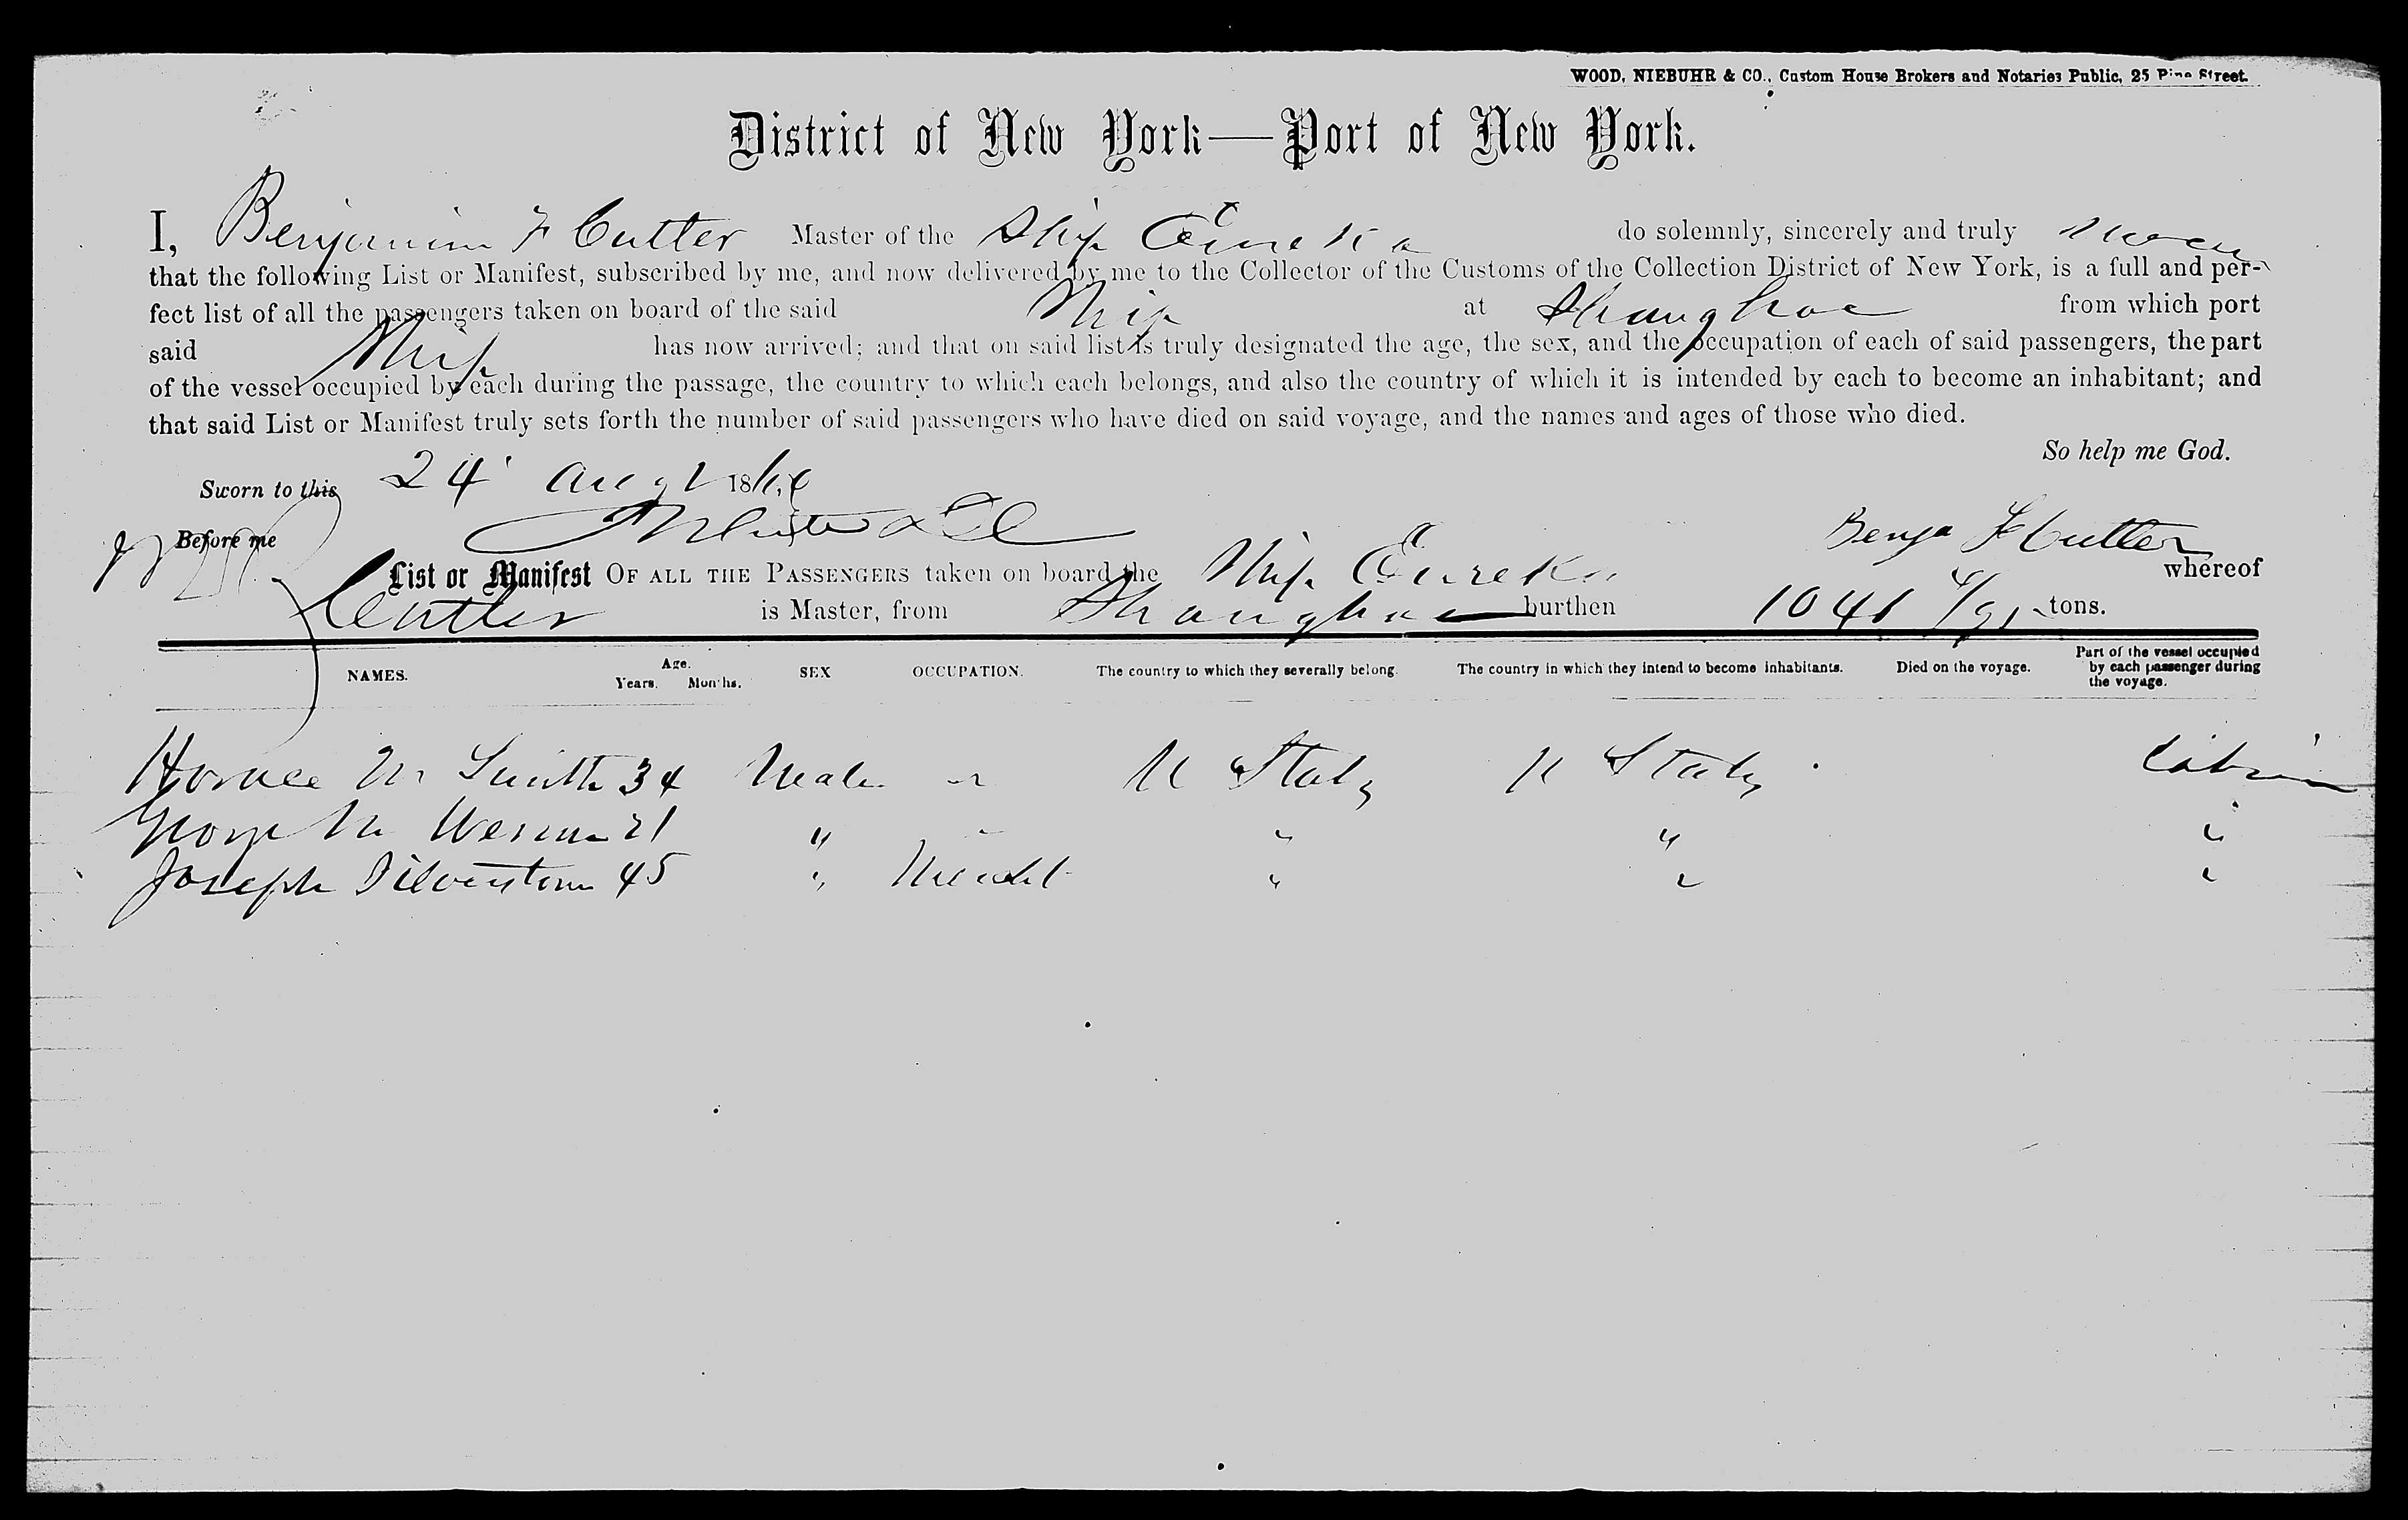 WOOD, NIEBUHR & CO., Custom House Brokers and Notaries Public, 25 Pine Street.
District of New York—Port of New York.
I, Benjamin F Cutler Master of the Ship Eureka do solemnly, sincerely and truly swear
that the following List or Manifest, subscribed by me, and now delivered by me to the Collector of the Customs of the Collection District of New York, is a full and per-
fect list of all the passengers taken on board of the said Ship at Shanghae from which port
said Ship has now arrived; and that on said list is truly designated the age, the sex, and the occupation of each of said passengers, the part
of the vessel occupied by each during the passage, the country to which each belongs, and also the country of which it is intended by each to become an inhabitant; and
that said List or Manifest truly sets forth the number of said passengers who have died on said voyage, and the names and ages of those who died.
So help me God.
Sworn to this 24 Augt 186
Before me
Benja F Cutler
List or Manifest OF ALL THE PASSENGERS taken on board the Ship Eureka whereof
Cutler is Master, from Shanghae burthen 1041 tons.
NAMES. Age. Years. Months. SEX OCCUPATION. The country to which they severally belong. The country in which they intend to become inhabitants. Died on the voyage. Part of the vessel occupied by each passenger during the voyage.
Horace M Smith 34 Male U States U States Cabin
George M 21 " " " "
Joseph Silverstone 45 " Mercht " " "